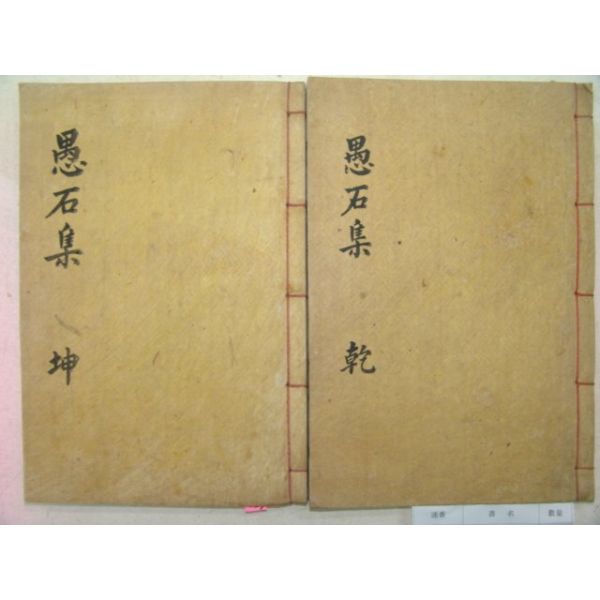 愚石集 乾
愚石集 坤
書名
數量